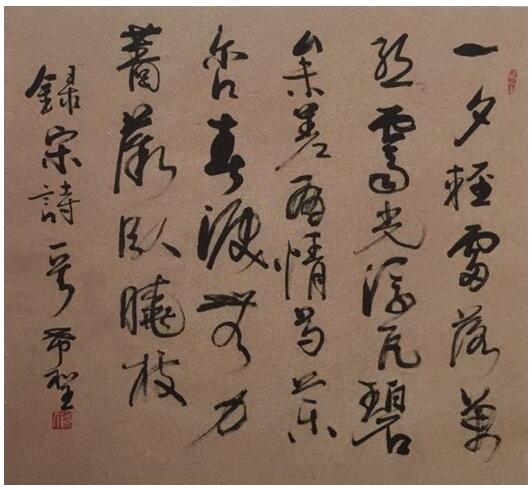 一夕輕雷落萬
絲霽光浮瓦碧
參差有情芍藥
含春淚無力
薔薇臥曉枝
録宋詩一首希